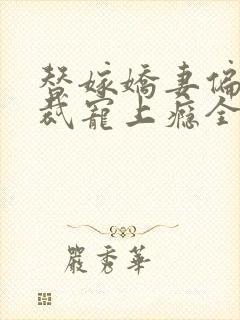 替嫁嬌妻偏
裁寵上癮全
嚴秀華